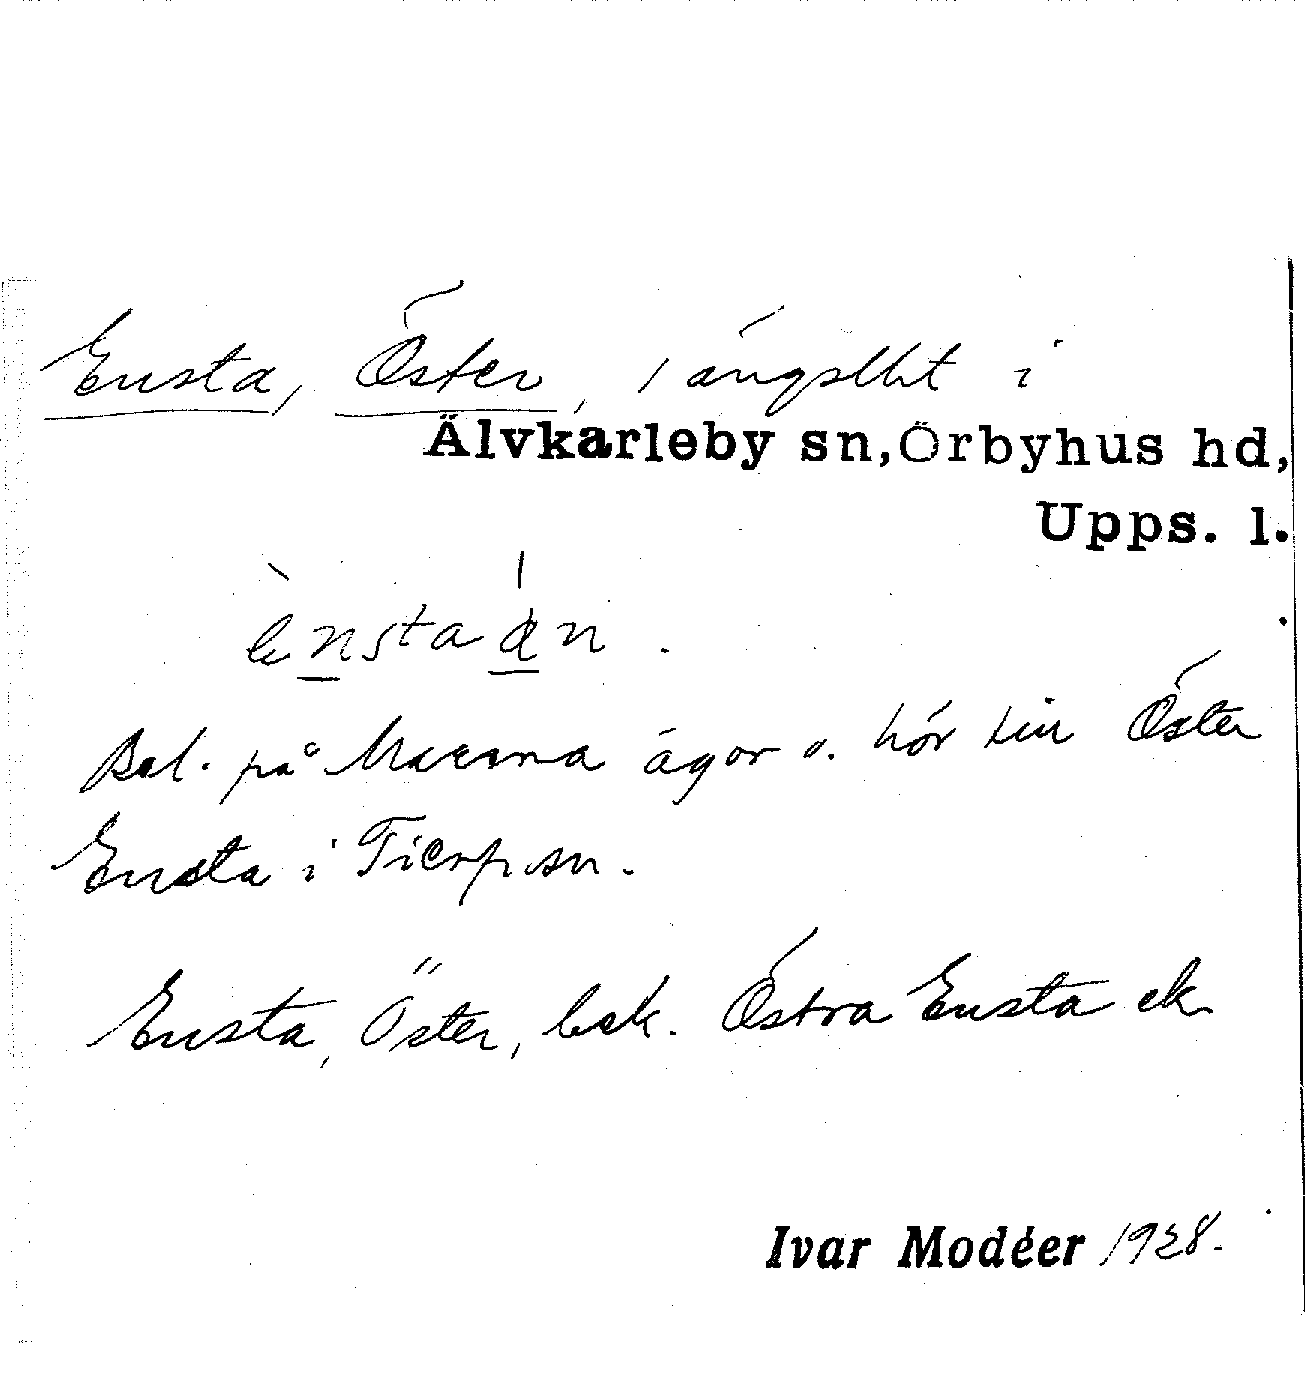 Ensta, Öster, 1 ängslht i
Älvkarleby sn, Örbyhus hd,
Upps. l.
ènstaán .
Bel. på Marma ägor o. hör till Öster
Ensta i Tierp sn.
Ensta, Öster, bek. Östra Ensta ek
Ivar Modéer 1928.